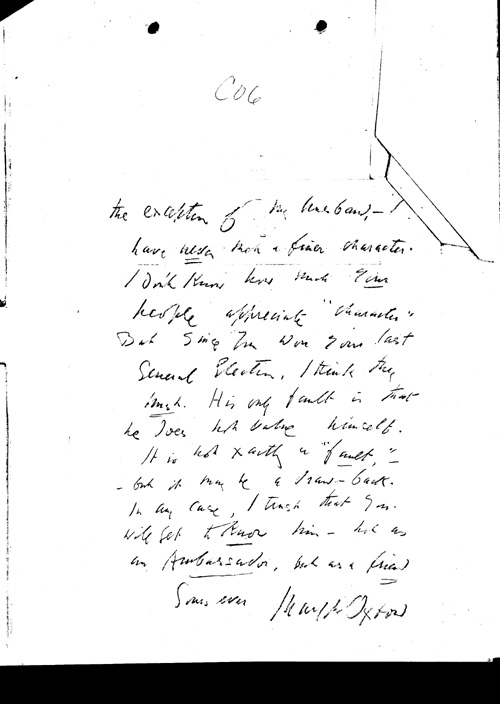 C06
the exception of my husband, – I
have never met a finer character.
I don't know how much your
people appreciate "character"
But since you won your last
General Election, I think they
must. His only fault is that
he does not value himself.
It is not xactly a "fault," –
– but it may be a draw-back.
In any case, I trust that you
will get to know him – not as
an Ambassador, but as a friend
Yours ever Margot Oxford